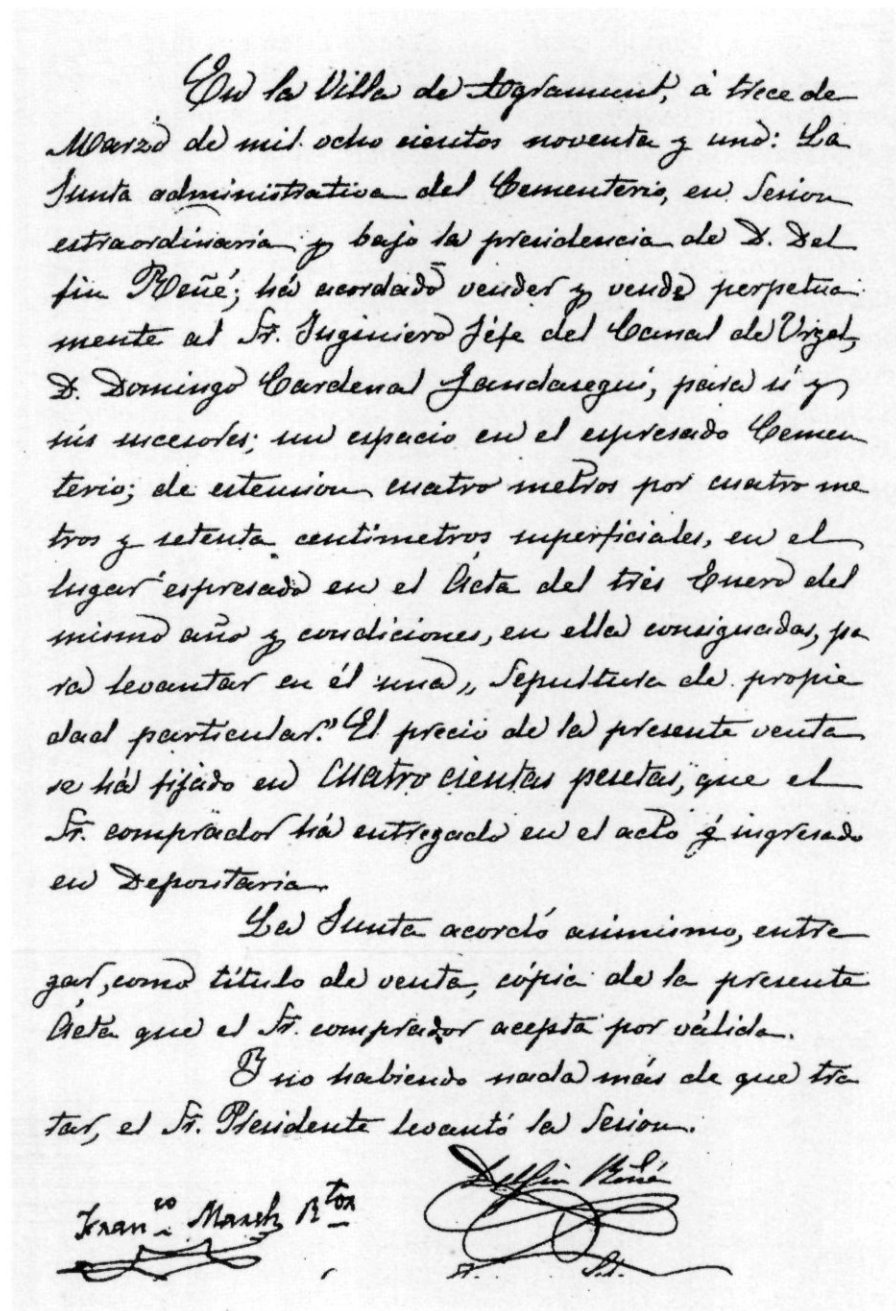 En la Villa de Agramunt, á trece de
Marzo de mil ocho cientos noventa y uno: La
Junta administrativa del Cementerio, en Sesion
estraordinaria y bajo la presidencia de D. Del
fin Reñé; há acordado vender y vende perpetua
mente al Sr. Inginiero Jéfe del Canal de Urgel,
D. Domingo Cardenal Gandasegui, para sí y
sus sucesores; un espacio en el espresado Cemen
terio; de estension cuatro metros por cuatro me
tros y setenta centímetros superficiales, en el
lugar espresado en el Acta del tres Enero del
mismo año y condiciones, en ella consignadas, pa
ra levantar en él una „ Sepultura de propie
dad particular." El precio de la presente venta
se há fijado en cuatro cientas pesetas, que el
Sr. comprador há entregado en el acto é ingresado
en Depositaria.
La Junta acordó asimismo, entre
gar, como título de venta, cópia de la presente
Acta que el Sr. comprador acepta por válida.
Y no habiendo nada más de que tra
tar, el Sr. Presidente levantó la Sesion.
Delfin Reñé
Fran.co March R.tor